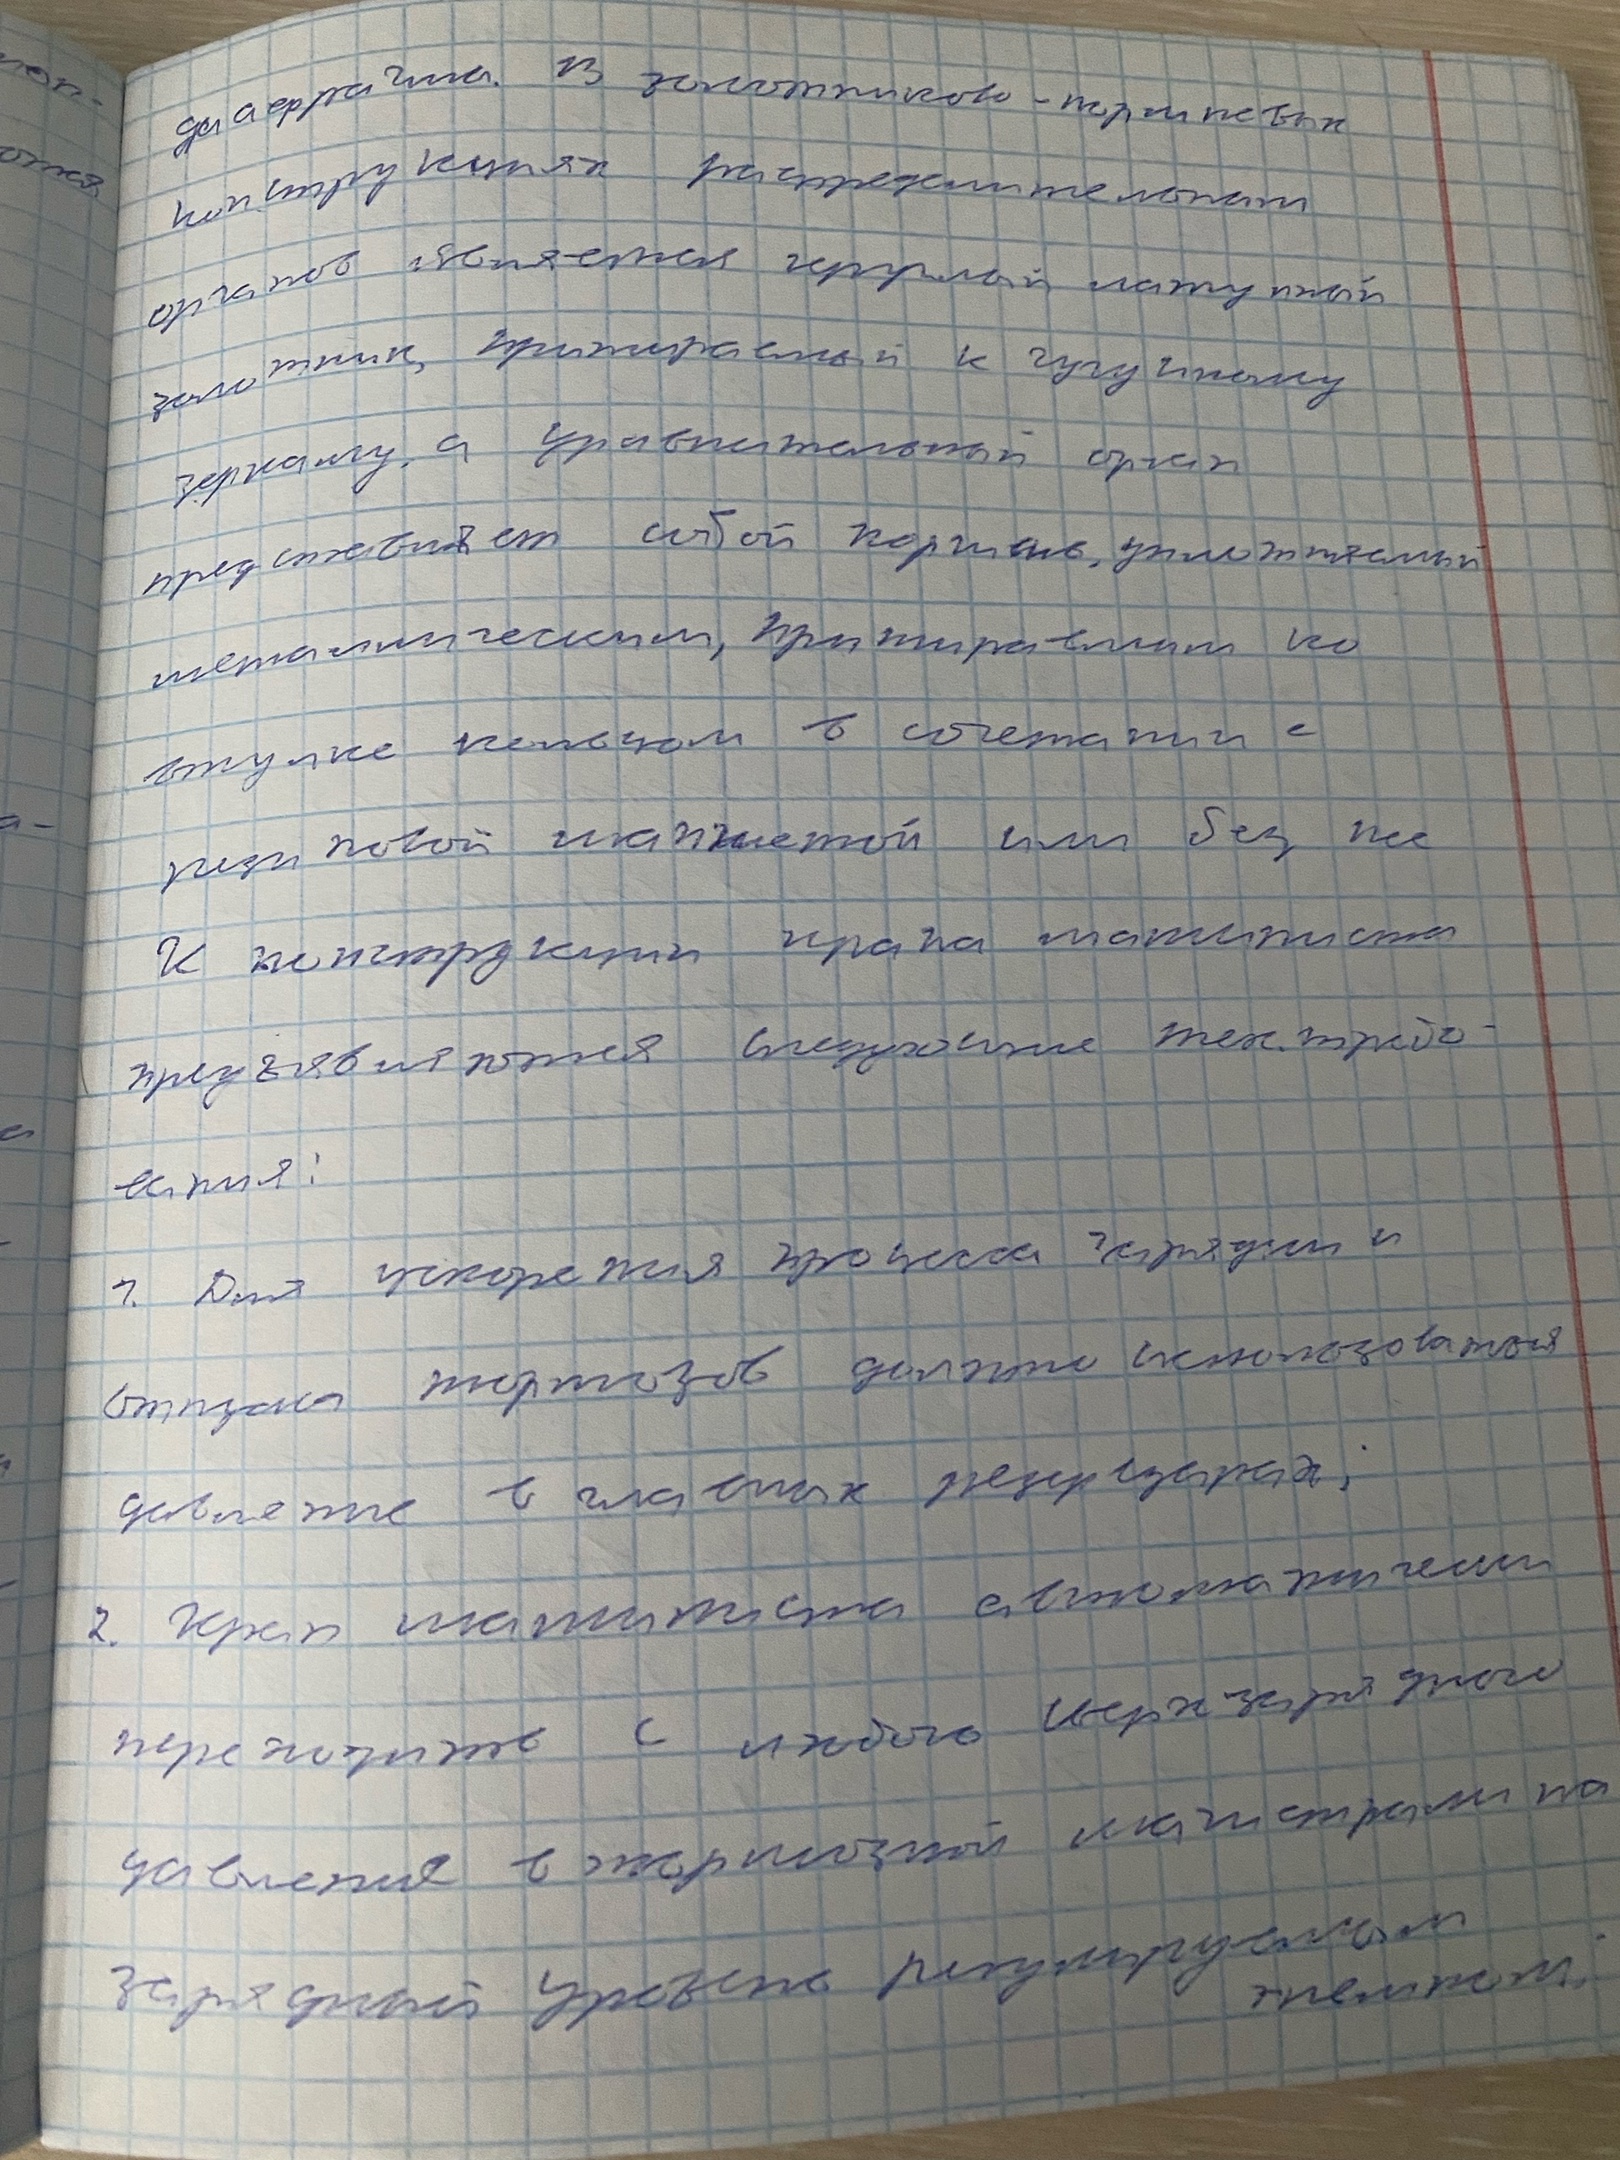 диафрагма. В золотниково-поршневых
конструкциях распределительным
органов является круглый латунный
золотник, притираемый к чугунному
зеркалу, а уравнительный орган
представляет собой поршень, уплотняемый
металлическим, притираемым ко
втулке кольцом в сочетании с
резиновой манжетой или без нее
К конструкции крана машиниста
предъявляются следующие тех. требо-
вания:
1. Для ускорения процесса зарядки и
отпуска тормозов должно использоваться
давление в главных резервуарах;
2. Кран машиниста автоматически
переходить с любого сверхзарядного
давления в тормозной магистрали на
зарядный уровень регулируемым
темпом;